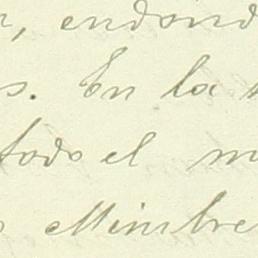 , en donde
s. En la
todo el m
Mimbre